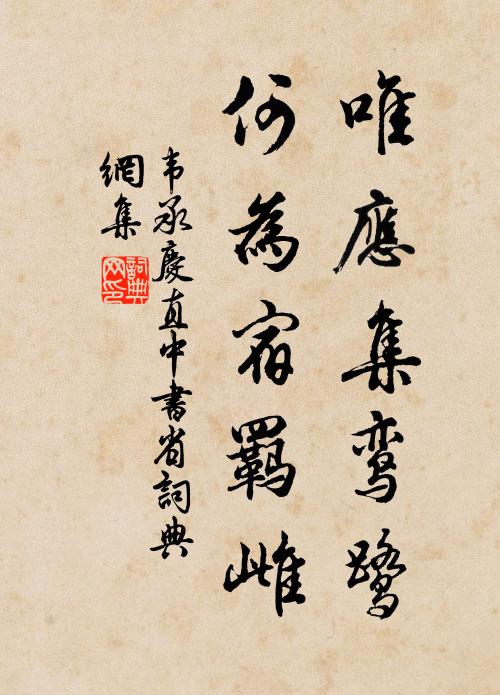 唯應集鸾鹭
何為宿羈雌
韦承慶直中書省詞典
網集
詞典網印